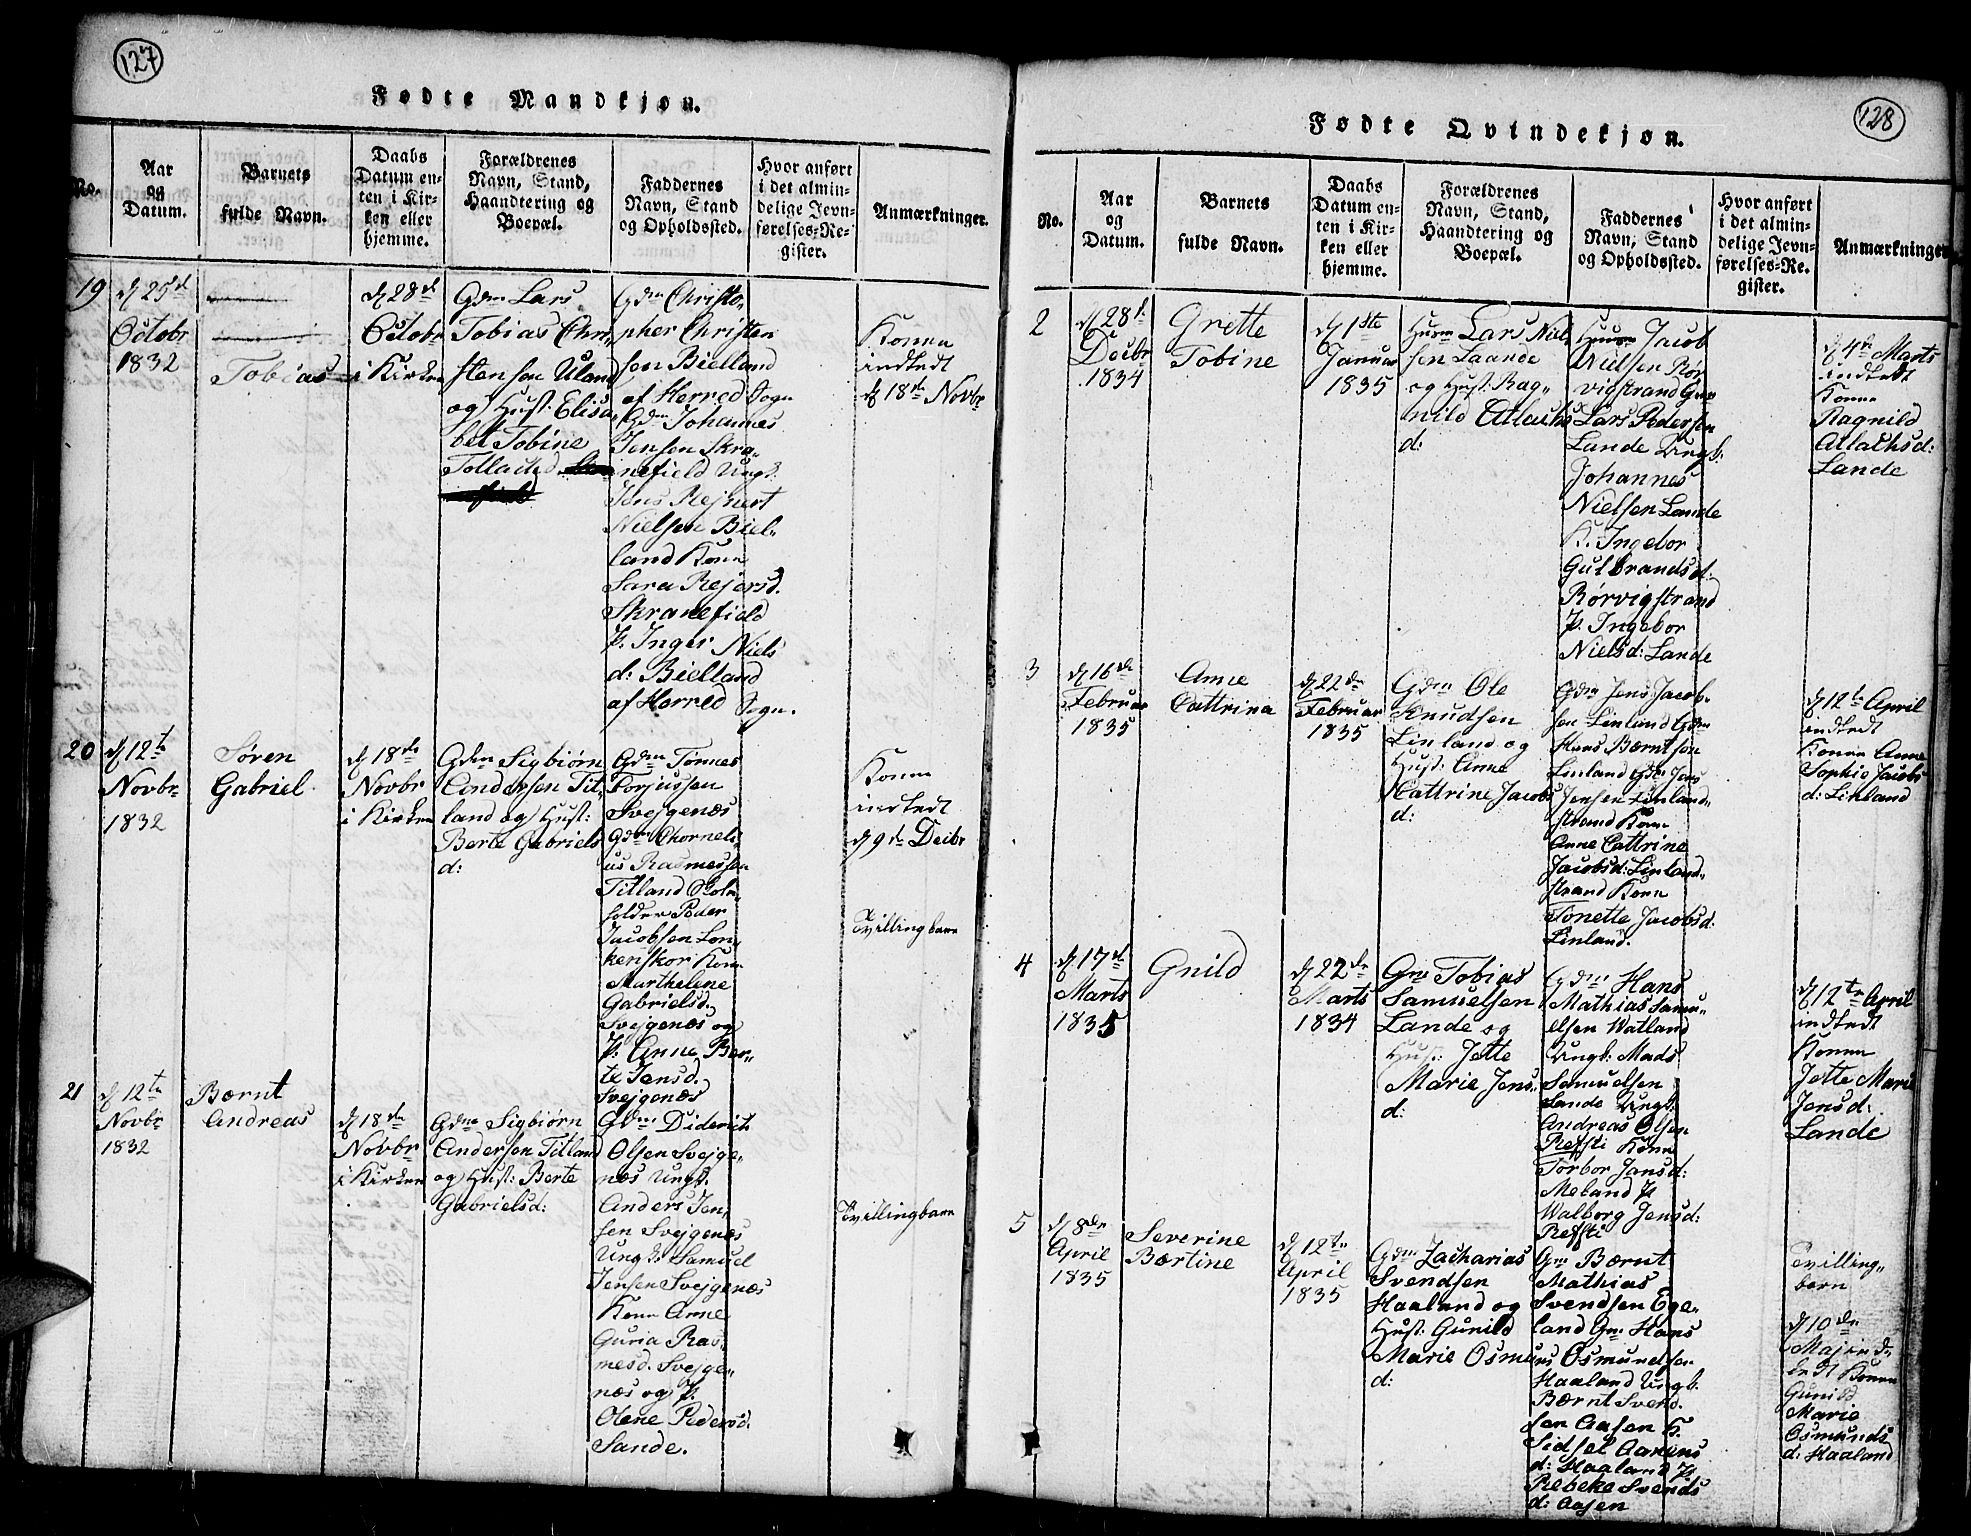 127
Fødte Mandkjøn.
No.
Aar
og
Datum.
Barnets
fulde Navn.
Daabs
Datum en-
ten i Kir-
ken eller
hjemme.
Forældrenes
Navn, Stand,
Haandtering og
Boepæl.
Faddernes
Navn, Stand
og Opholdssted.
Hvor anført
i det almin-
delige Jevn-
førelses-Re-
gister.
Anmærkninger.
19
d 25d
Octobr
1832
Tobias
d 28d
Octobr
i Kirken
Gdm Lars
Tobias Chri-
stensen Uland
og Hust: Elisa-
bet Tobine
Tollachsd
Gdm Christo-
pher Christen
sen Bielland
af Herred Sogn
Gdm Johannes
Jensen Skra-
nefield Ungk:
Jens Rejnert
Nielsen Biel-
land Kone
Sara Rejersd.
Skranefield
P. Inger Niels
d: Bielland
af Herred Sogn.
Konen
indledt
d 18d Novbr
20
d 12te
Novbr
1832
Søren
Gabriel
d 18de
Novbr
i Kirken
Gdm Sigbiørn
Andersen Tit-
land og Hust:
Berte Gabriels
d:
Gdm Tønnes
Torjussen
Svejgenæs
Gdm Chorneli-
us Rasmessen
Titland
Peder
Jacobsen
Kone
Marthelene
Gabrielsd.
Svejgenæs og
P: Anne Ber-
te Jensd.
Svejgenæs
Konen
indledt
d 9d Decbr
Tvillingbarn
21
d 12te
Novbr
1832
Bærnt
Andreas
d 18de
Novbr
i Kirken
Gdm Sigbiørn
Andersen Titland
og Hust: Berte
Gabrielsd:
Gdm Diderich
Olsen Svejge-
næs Ungk.
Anders Jen-
sen Svejgenæs
Ungk. Samuel
Jensen Svejgenæs
Kone Anne
Guria Ras-
mesd. Svejge-
næs og P.
Olene Pedersd.
Sande.
Tvillingbarn
128
Fødte Qvindekjøn.
No.
Aar
og
Datum.
Barnets
fulde Navn.
Daabs
Datum en-
ten i Kir-
ken eller
hjemme.
Forældrenes
Navn, Stand,
Haandtering og
Boepæl.
Faddernes
Navn, Stand
og Opholdssted.
Hvor anført
i det almin-
delige Jevn-
førelses-Re-
gister.
Anmærkninger
2
d 28d
Decbr
1834
Grette
Tobine
d 1ste
Januar
1835
Husm Lars Niel
sen Laande
og Hust: Rag-
nild Atlachs
d:
Husm Jacob
Nielsen Rør
vigstrand Gm
Lars Pedersen
Lande Ungk:
Johannes
Nielsen Lande
K. Ingebor
Gulbrandsd:
Rørvigstrand
P. Ingebor
Nielsd: Lande
d 4de Marts
indledt
Konen
Ragnild
Atlachsd:
Lande
3
d 16de
Februar
1835
Anne
Cattrina
d 22de
Februar
1835
Gdm Ole
Knudsen
Linland og
Hust: Anne
Cattrine Jacobs
d:
Gdm Jens Jacob-
sen Linland Gdm
Hans Bærntsen
Linland Gdm Jens
Jensen Linland-
strand Kone
Anne Cattrine
Jacobsd: Linland-
strand Kone
Tonette Jacobsd.
Linland.
d 12te April
indledt
Konen Anne
Sophie Jacobs
d: Linland
4
d 17de
Marts
1835
Gnild
d 22de
Marts
1834
Gm Tobias
Samuelsen
Lande og
Hust: Jette
Marie Jens-
d:
Gdm Hans
Mathias Samu-
elsen Watland
Ungk: Mads
Samuelsen
Lande Ungk.
Andreas Olsen
Refsti Kone
Torbor Jansd:
Meland P.
Walborg Jensd:
Refsti
d 12te April
indledt
Konen
Jette Marie
Jensd:
Lande
5
d 8de
April
1835
Severine
Bærtine
d 12te
April
1835
Gdm Zacharias
Svendsen
Haaland og
Hust: Gunild
Marie Osmuns
d:
Gm Bærnt
Mathias
Svendsen Ege-
land Gm Hans
Osmundsen
Haaland Ungk.
Bærnt Svend
sen Aasen K.
Sidsel Aanens
d: Haaland P.
Rebeke Svends
d: Aasen
Tvilling-
barn
d 10de
Maj ind-
ledt Konen
Gunild
Marie
Osmunds
d: Haaland